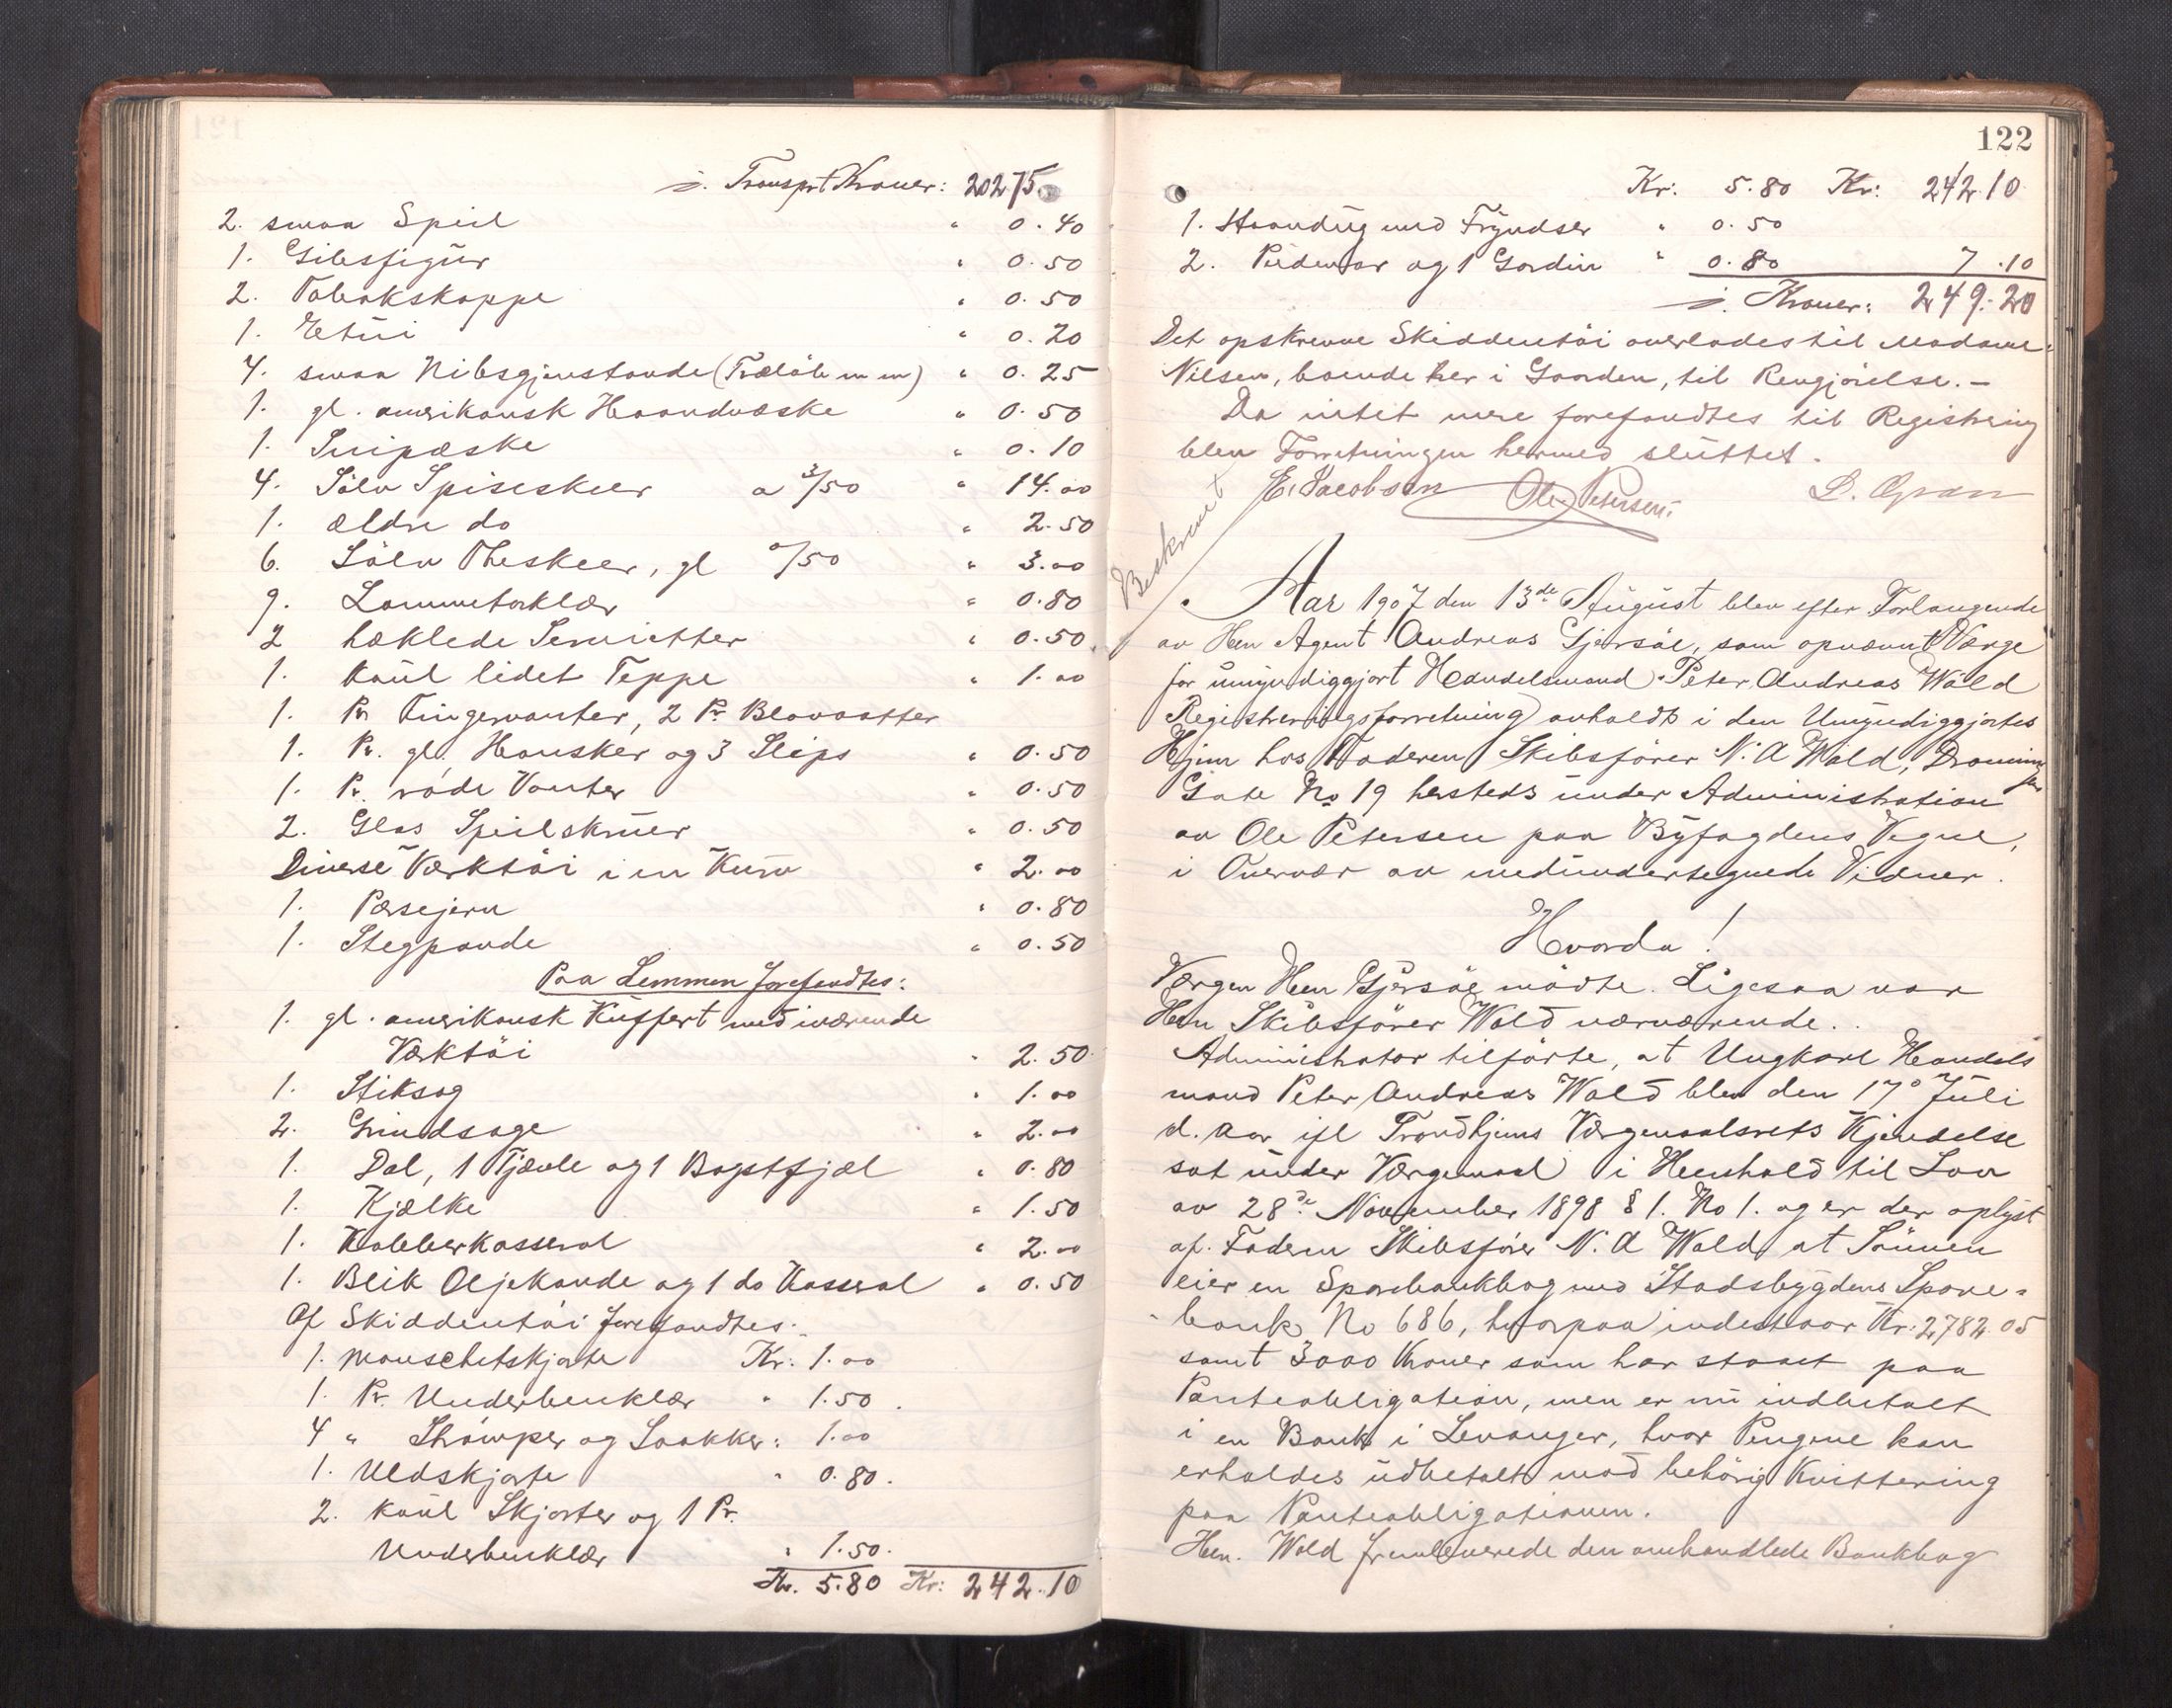 :/: Transpt Kroner: 202.75
2. smaa Speil " 0.40
1. Gibsfigur " 0.50
2. Tobakskoppe " 0.50
1. Etui " 0.20
4. smaa Nibsgjenstande (Træløb m m) " 0.25
1. gl. amerikansk Haandvæske " 0.50
1. Snipæske " 0.10
4. Sölv Spiseskeer a 3/50 " 14.00
1. ældre do " 2.50
6. Sölv Theskeer, gl 0/50 " 3.00
9. Lommetörklær " 0.80
2 hæklede Servietter " 0.50
1. kaul lidet Teppe " 1.00
1. Pr Fingervanter, 2 Pr
1. Pr. gl. Hansker og 3 Slips " 0.50
1. Pr. röde Vanter " 0.50
2. Glas Speilskruer " 0.50
Diverse Værktöi i en Kurv " 2.00
1. Pæsejern " 0.80
1. Stegpande " 0.50
Paa Lemmen forefandtes:
1. gl. amerikansk Kuffert med iværende
Værktöi " 2.50
1. Stiksag " 1.00
2. Grindsage " 2.00
1. Dal, 1 Kjævle og 1 Bagstfjæl " 0.80
1. Kjælke " 1.50
1. Kobberkasserol " 2.00
1. Blik Oljekande og 1 do Kasserol " 0.50
Af Skiddentöi forefandtes:
1. Manschetskjorte Kr: 1.00
1. Pr. Underbenklær " 1.50.
4 " Strömper og Saakker: 1.00
1. Uldskjorte " 0.80.
2. kaul Skjorter og 1 Pr.
Underbenklær " 1.50.
Kr. 5.80 Kr: 242.10
122
Kr: 5.80 Kr: 242.10
1. Haandug med Fryndser " 0.50
2. Pudevar og 1 Gardin " 0.80 7.10
:/: Kroner: 249.20
Det opskrevne Skiddentöi overlodes til Madame
Nilsen, boende her i Gaarden, til Rengjörelse. –
Da intet mere forefandtes til Registrering
blev Forretningen hermed sluttet.
E. Jacobsen Ole Petersen. L. Gran
Beskrevet
Aar 1907 den 13de August blev efter Forlangende
av Herr Agent Andreas Gjersöe, som opnævnt Værge
for umyndiggjort Handelsmand Peter Andreas Wold
Registreringsforretning avholdt i den Umyndiggjortes
Hjem hos Faderen Skibsförer N. A Wold, Dronning
Gate No 19 hersteds under Administration
av Ole Petersen paa Byfogdens Vegne,
i Overvær av medundertegnede Vidner.
Hvorda!
Værgen Herr Gjersöe mödte. Ligesaa var
Herr Skibsförer Wold nærværende.
Administrator tilförte, at Ungkarl Handels
mand Peter Andreas Wold blev den 17de Juli
d. Aar ifl Trondhjems Værgemaalsrets Kjendelse
sat under Værgemaal i Henhold til Lov
av 28de November 1898 § 1. No 1. og er der oplyst
af Faderen Skibsförer N. A Wold at Sönnen
eier en Sparebankbog med Stadsbygdens Spare-
bank No 686, hvorpaa indestaar Kr: 2782.05
samt 3000 Kroner som har staaet paa
Panteobligation, men er nu indbetalt
i en Bank i Levanger, hvor Pengene kan
erholdes udbetalt mod behörig Kvittering
paa Panteobligationen.
Herr. Wold fremleverede den omhandlede Bankbog